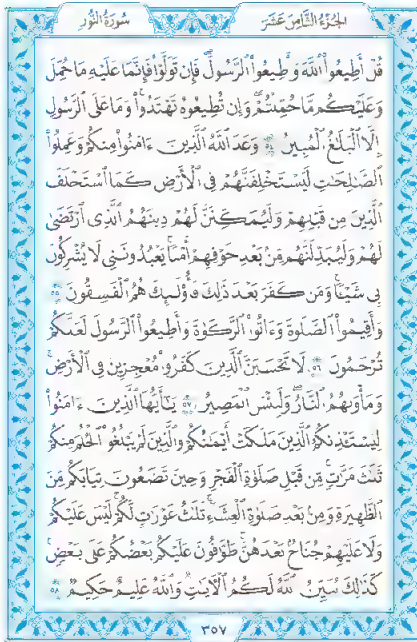 الجزء الثامن عشر
سورة النور
قُلْ أَطِيعُوا۟ ٱللَّهَ وَأَطِيعُوا۟ ٱلرَّسُولَ ۖ فَإِن تَوَلَّوْا۟ فَإِنَّمَا عَلَيْهِ مَا حُمِّلَ
وَعَلَيْكُم مَّا حُمِّلْتُمْ ۖ وَإِن تُطِيعُوهُ تَهْتَدُوا۟ ۚ وَمَا عَلَى ٱلرَّسُولِ
إِلَّا ٱلْبَلَٰغُ ٱلْمُبِينُ ٥٤ وَعَدَ ٱللَّهُ ٱلَّذِينَ ءَامَنُوا۟ مِنكُمْ وَعَمِلُوا۟
ٱلصَّٰلِحَٰتِ لَيَسْتَخْلِفَنَّهُمْ فِى ٱلْأَرْضِ كَمَا ٱسْتَخْلَفَ
ٱلَّذِينَ مِن قَبْلِهِمْ وَلَيُمَكِّنَنَّ لَهُمْ دِينَهُمُ ٱلَّذِى ٱرْتَضَىٰ
لَهُمْ وَلَيُبَدِّلَنَّهُم مِّنۢ بَعْدِ خَوْفِهِمْ أَمْنًا ۚ يَعْبُدُونَنِى لَا يُشْرِكُونَ
بِى شَيْـًٔا ۚ وَمَن كَفَرَ بَعْدَ ذَٰلِكَ فَأُو۟لَٰٓئِكَ هُمُ ٱلْفَٰسِقُونَ ٥٥
وَأَقِيمُوا۟ ٱلصَّلَوٰةَ وَءَاتُوا۟ ٱلزَّكَوٰةَ وَأَطِيعُوا۟ ٱلرَّسُولَ لَعَلَّكُمْ
تُرْحَمُونَ ٥٦ لَا تَحْسَبَنَّ ٱلَّذِينَ كَفَرُوا۟ مُعْجِزِينَ فِى ٱلْأَرْضِ ۚ
وَمَأْوَىٰهُمُ ٱلنَّارُ ۖ وَلَبِئْسَ ٱلْمَصِيرُ ٥٧ يَٰٓأَيُّهَا ٱلَّذِينَ ءَامَنُوا۟
لِيَسْتَـْٔذِنكُمُ ٱلَّذِينَ مَلَكَتْ أَيْمَٰنُكُمْ وَٱلَّذِينَ لَمْ يَبْلُغُوا۟ ٱلْحُلُمَ مِنكُمْ
ثَلَٰثَ مَرَّٰتٍ ۚ مِّن قَبْلِ صَلَوٰةِ ٱلْفَجْرِ وَحِينَ تَضَعُونَ ثِيَابَكُم مِّنَ
ٱلظَّهِيرَةِ وَمِنۢ بَعْدِ صَلَوٰةِ ٱلْعِشَآءِ ۚ ثَلَٰثُ عَوْرَٰتٍ لَّكُمْ ۚ لَيْسَ عَلَيْكُمْ
وَلَا عَلَيْهِمْ جُنَاحٌۢ بَعْدَهُنَّ ۚ طَوَّٰفُونَ عَلَيْكُم بَعْضُكُمْ عَلَىٰ بَعْضٍ ۚ
كَذَٰلِكَ يُبَيِّنُ ٱللَّهُ لَكُمُ ٱلْءَايَٰتِ ۗ وَٱللَّهُ عَلِيمٌ حَكِيمٌ ٥٨
٣٥٧